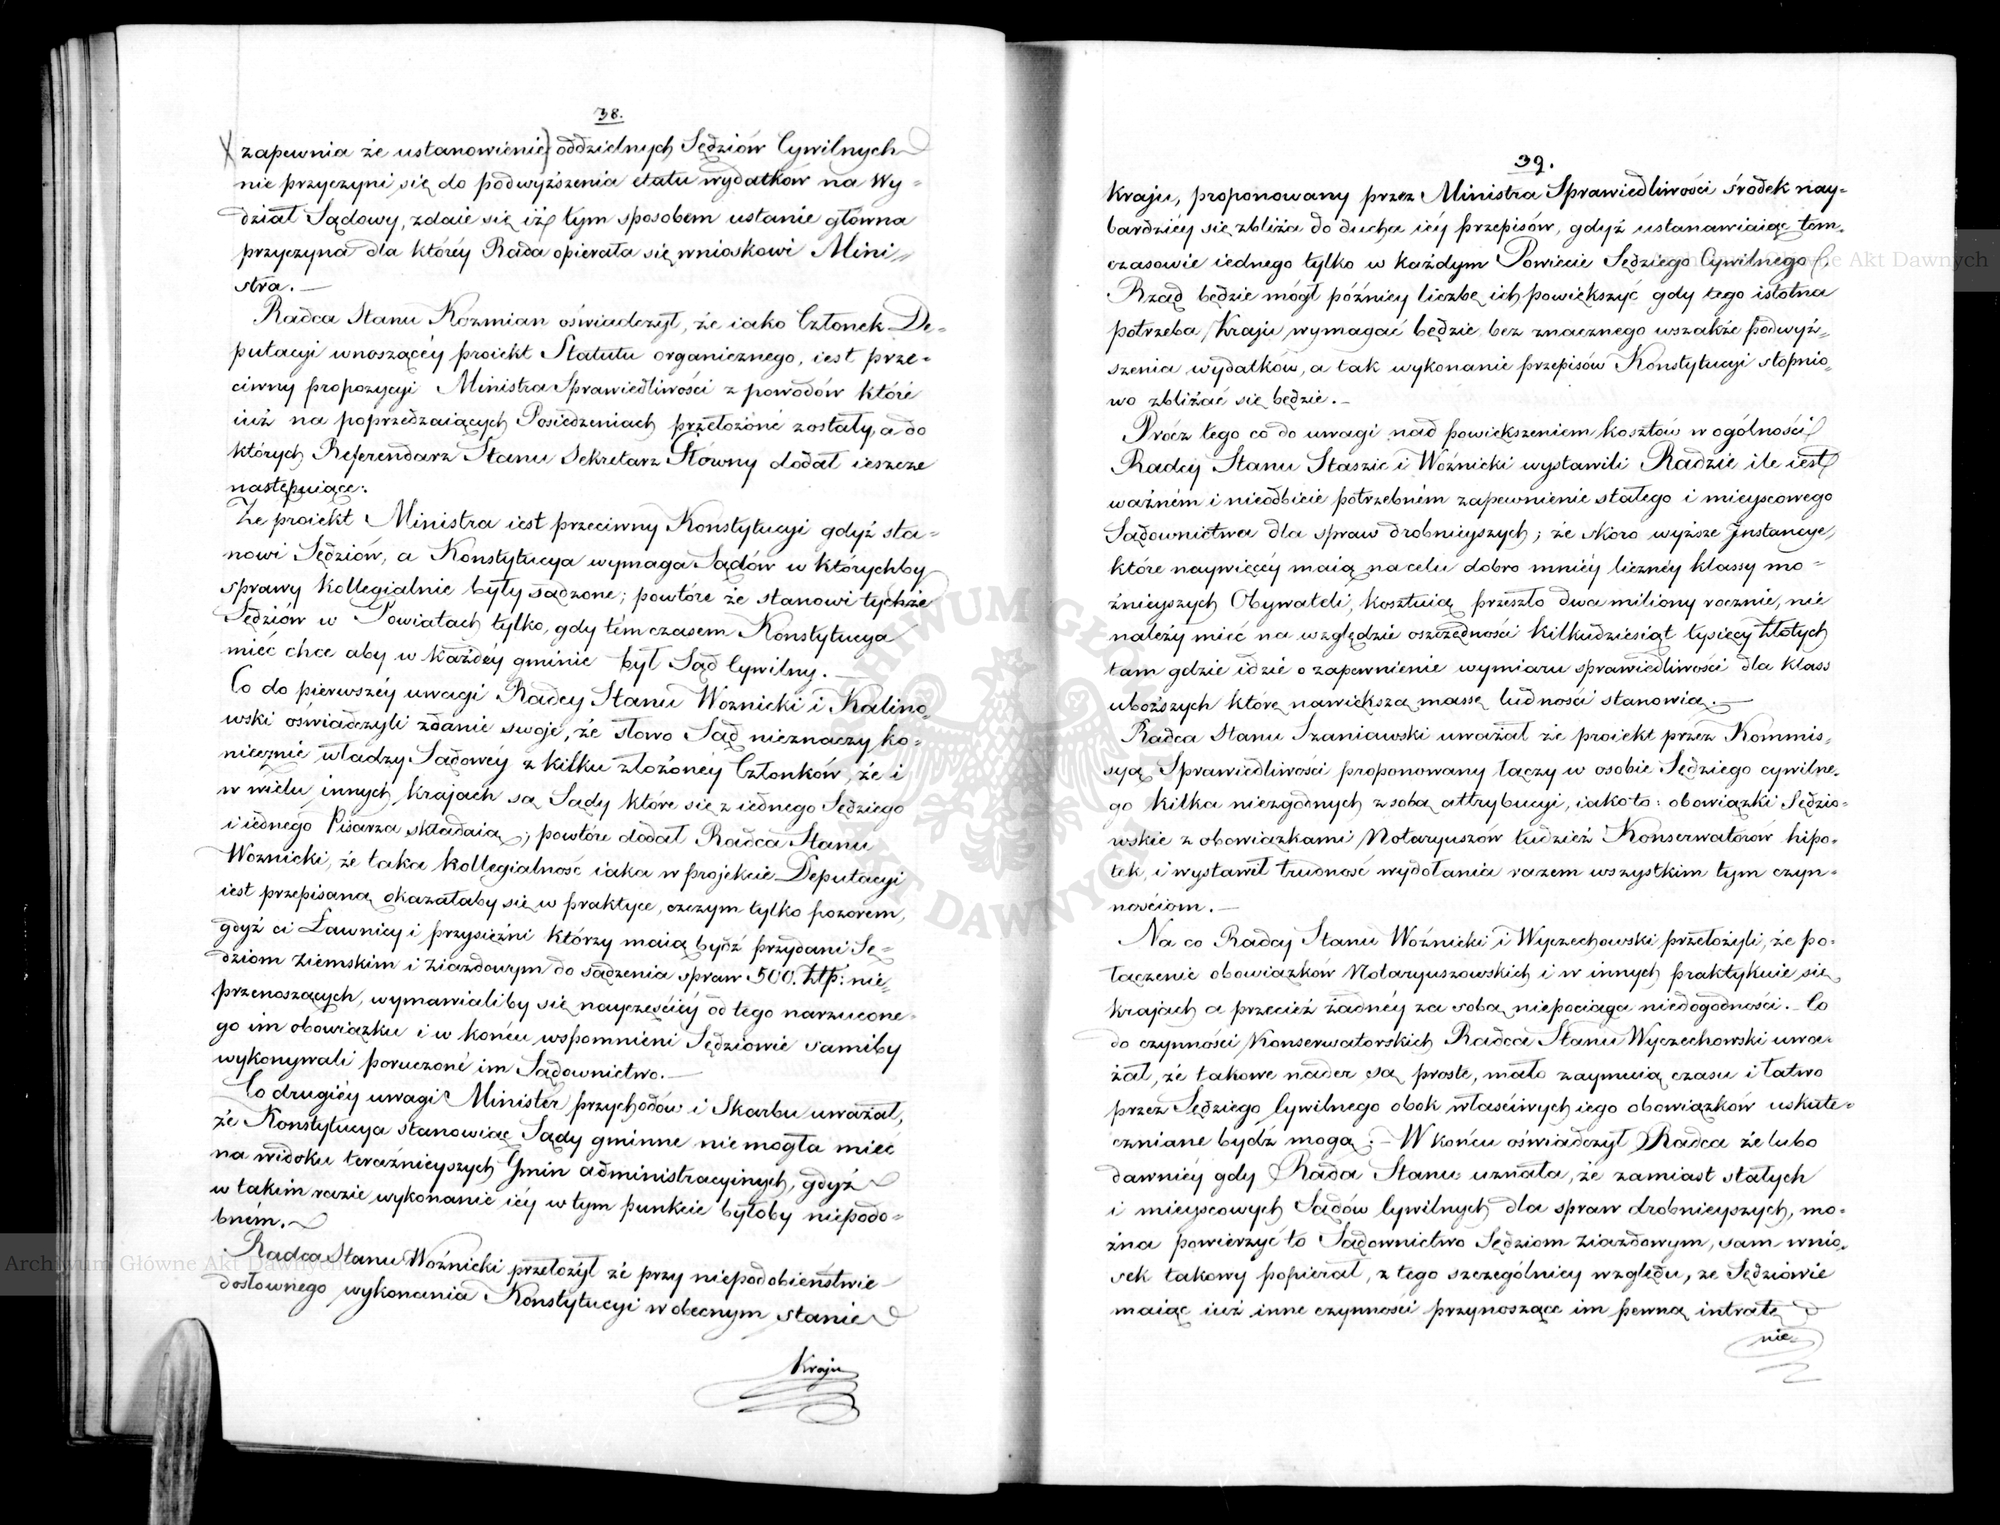 38.
zapewnia że ustanowienie oddzielnych Sędziów Cywilnych
nie przyczyni się do podwyższenia etatu wydatków na Wy-
dział Sądowy, zdaie się iż tym sposobem ustanie główna
przyczyna dla któréy Rada opierała się wnioskowi Mini-
stra. —
Radca Stanu Kozmian oświadczył, że iako Członek De-
putacyi wnoszącéy proiekt Statutu organicznego, iest prze-
ciwny propozycyi Ministra Sprawiedliwości z powodów które
iuż na poprzedzaiących Posiedzeniach przełożone zostały, a do
których Referendarz Stanu Sekretarz Główny dodał ieszcze
następuiące:
Że proiekt Ministra iest przeciwny Konstytucyi gdyż sta-
nowi Sędziów, a Konstytucya wymaga Sądów w którychby
sprawy kollegialnie były sądzone; powtóre że stanowi tychże
Sędziów w Powiatach tylko, gdy tém czasem Konstytucya
mieć chce aby w każdéy gminie był Sąd Cywilny. —
Co do pierwszéy uwagi Radcy Stanu Woznicki i Kalino-
wski oświadczyli zdanie swoje, że słowo Sąd nieznaczy ko-
niecznie władzy Sądowéy z kilku złożonéy Członków, że i
w wielu innych krajach są Sądy które się z iednego Sędziego
i iednego Pisarza składaią; powtóre dodał Radca Stanu
Woznicki, że taka kollegialność iaka w projekcie Deputacyi
iest przepisana okazałaby się w praktyce, czczym tylko pozorem,
gdyż ci Ławnicy i przysiężni którzy maią bydź przydani Sę-
dziom Ziemskim i Ziazdowym do sądzenia spraw 500. Złp: nie-
przenoszących, wymawialiby się nayczęściéy od tego narzucone-
go im obowiązku i w końcu wspomnieni Sędziowie samiby
wykonywali poruczone im Sądownictwo. —
Co drugiéy uwagi Minister przychodów i Skarbu uważał,
że Konstytucya stanowiąc Sądy gminne niemogła mieć
na widoku teraźnieyszych Gmin administracyinych, gdyż
w takim razie wykonanie iéy w tym punkcie byłoby niepodo-
bném.
Radca Stanu Woźnicki przełożył że przy niepodobieństwie
dosłownego wykonania Konstytucyi w obecnym stanie
Kraju
39.
Kraju, proponowany przez Ministra Sprawiedliwości środek nay-
bardziéy się zbliża do ducha iéy przepisów, gdyż ustanawiaiąc tem-
czasowie iednego tylko w każdym Powiecie Sędziego Cywilnego,
Rząd będzie mógł późniéy liczbę ich powiększyć gdy tego istotna
potrzeba Kraju wymagać będzie bez znacznego wszakże podwyż-
szenia wydatków, a tak wykonanie przepisów Konstytucyi stopnio-
wo zbliżać się będzie. —
Prócz tego co do uwagi nad powiększeniem kosztów w ogólności
Radcy Stanu Staszic i Woźnicki wystawili Radzie ile iest
ważném i nieodbicie potrzebném zapewnienie stałego i mieyscowego
Sądownictwa dla spraw drobnieyszych; że skoro wyższe Instancye,
które naywięcéy maią na celu dobro mniéy licznéy klassy mo-
żnieyszych Obywateli, kosztuią przeszło dwa miliony rocznie, nie
należy mieć na względzie oszczędności kilkudziesiąt tysięcy Złotych
tam gdzie idzie o zapewnienie wymiaru sprawiedliwości dla klass
uboższych które nawiększą massę ludności stanowią. —
Radca Stanu Szaniawski uważał że proiekt przez Kommis-
syą Sprawiedliwości proponowany łączy w osobie Sędziego cywilne-
go kilka niezgodnych z sobą attrybucyi, iako to: obowiązki Sędzio-
wskie z obowiązkami Notaryuszów tudzież Konserwatorów hipo-
tek, i wystawił trudność wydołania razem wszystkim tym czyn-
nościom. —
Na co Radcy Stanu Woźnicki i Wyczechowski przełożyli, że po-
łączenie obowiązków Notaryuszowskich i w innych praktykuie się
krajach a przecież żadnéy za sobą niepociąga niedogodności. — Co
do czynności Konserwatorskich Radca Stanu Wyczechowski uwa-
żał, że takowe nader są proste, mało zaymuią czasu i łatwo
przez Sędziego Cywilnego obok właściwych iego obowiązków uskute-
czniane bydź mogą. — W końcu oświadczył Radca że lubo
dawniéy gdy Rada Stanu uznała, że zamiast stałych
i mieyscowych Sądów Cywilnych dla spraw drobnieyszych, mo-
żna powierzyć to Sądownictwo Sędziom Ziazdowym, sam wnio-
sek takowy popierał, z tego szczególniéy względu, że Sędziowie
maiąc iuż inne czynności przynoszące im pewną intratę
nie
Archiwum Główne Akt Dawnych
ARCHIWUM GŁÓWNE AKT DAWNYCH